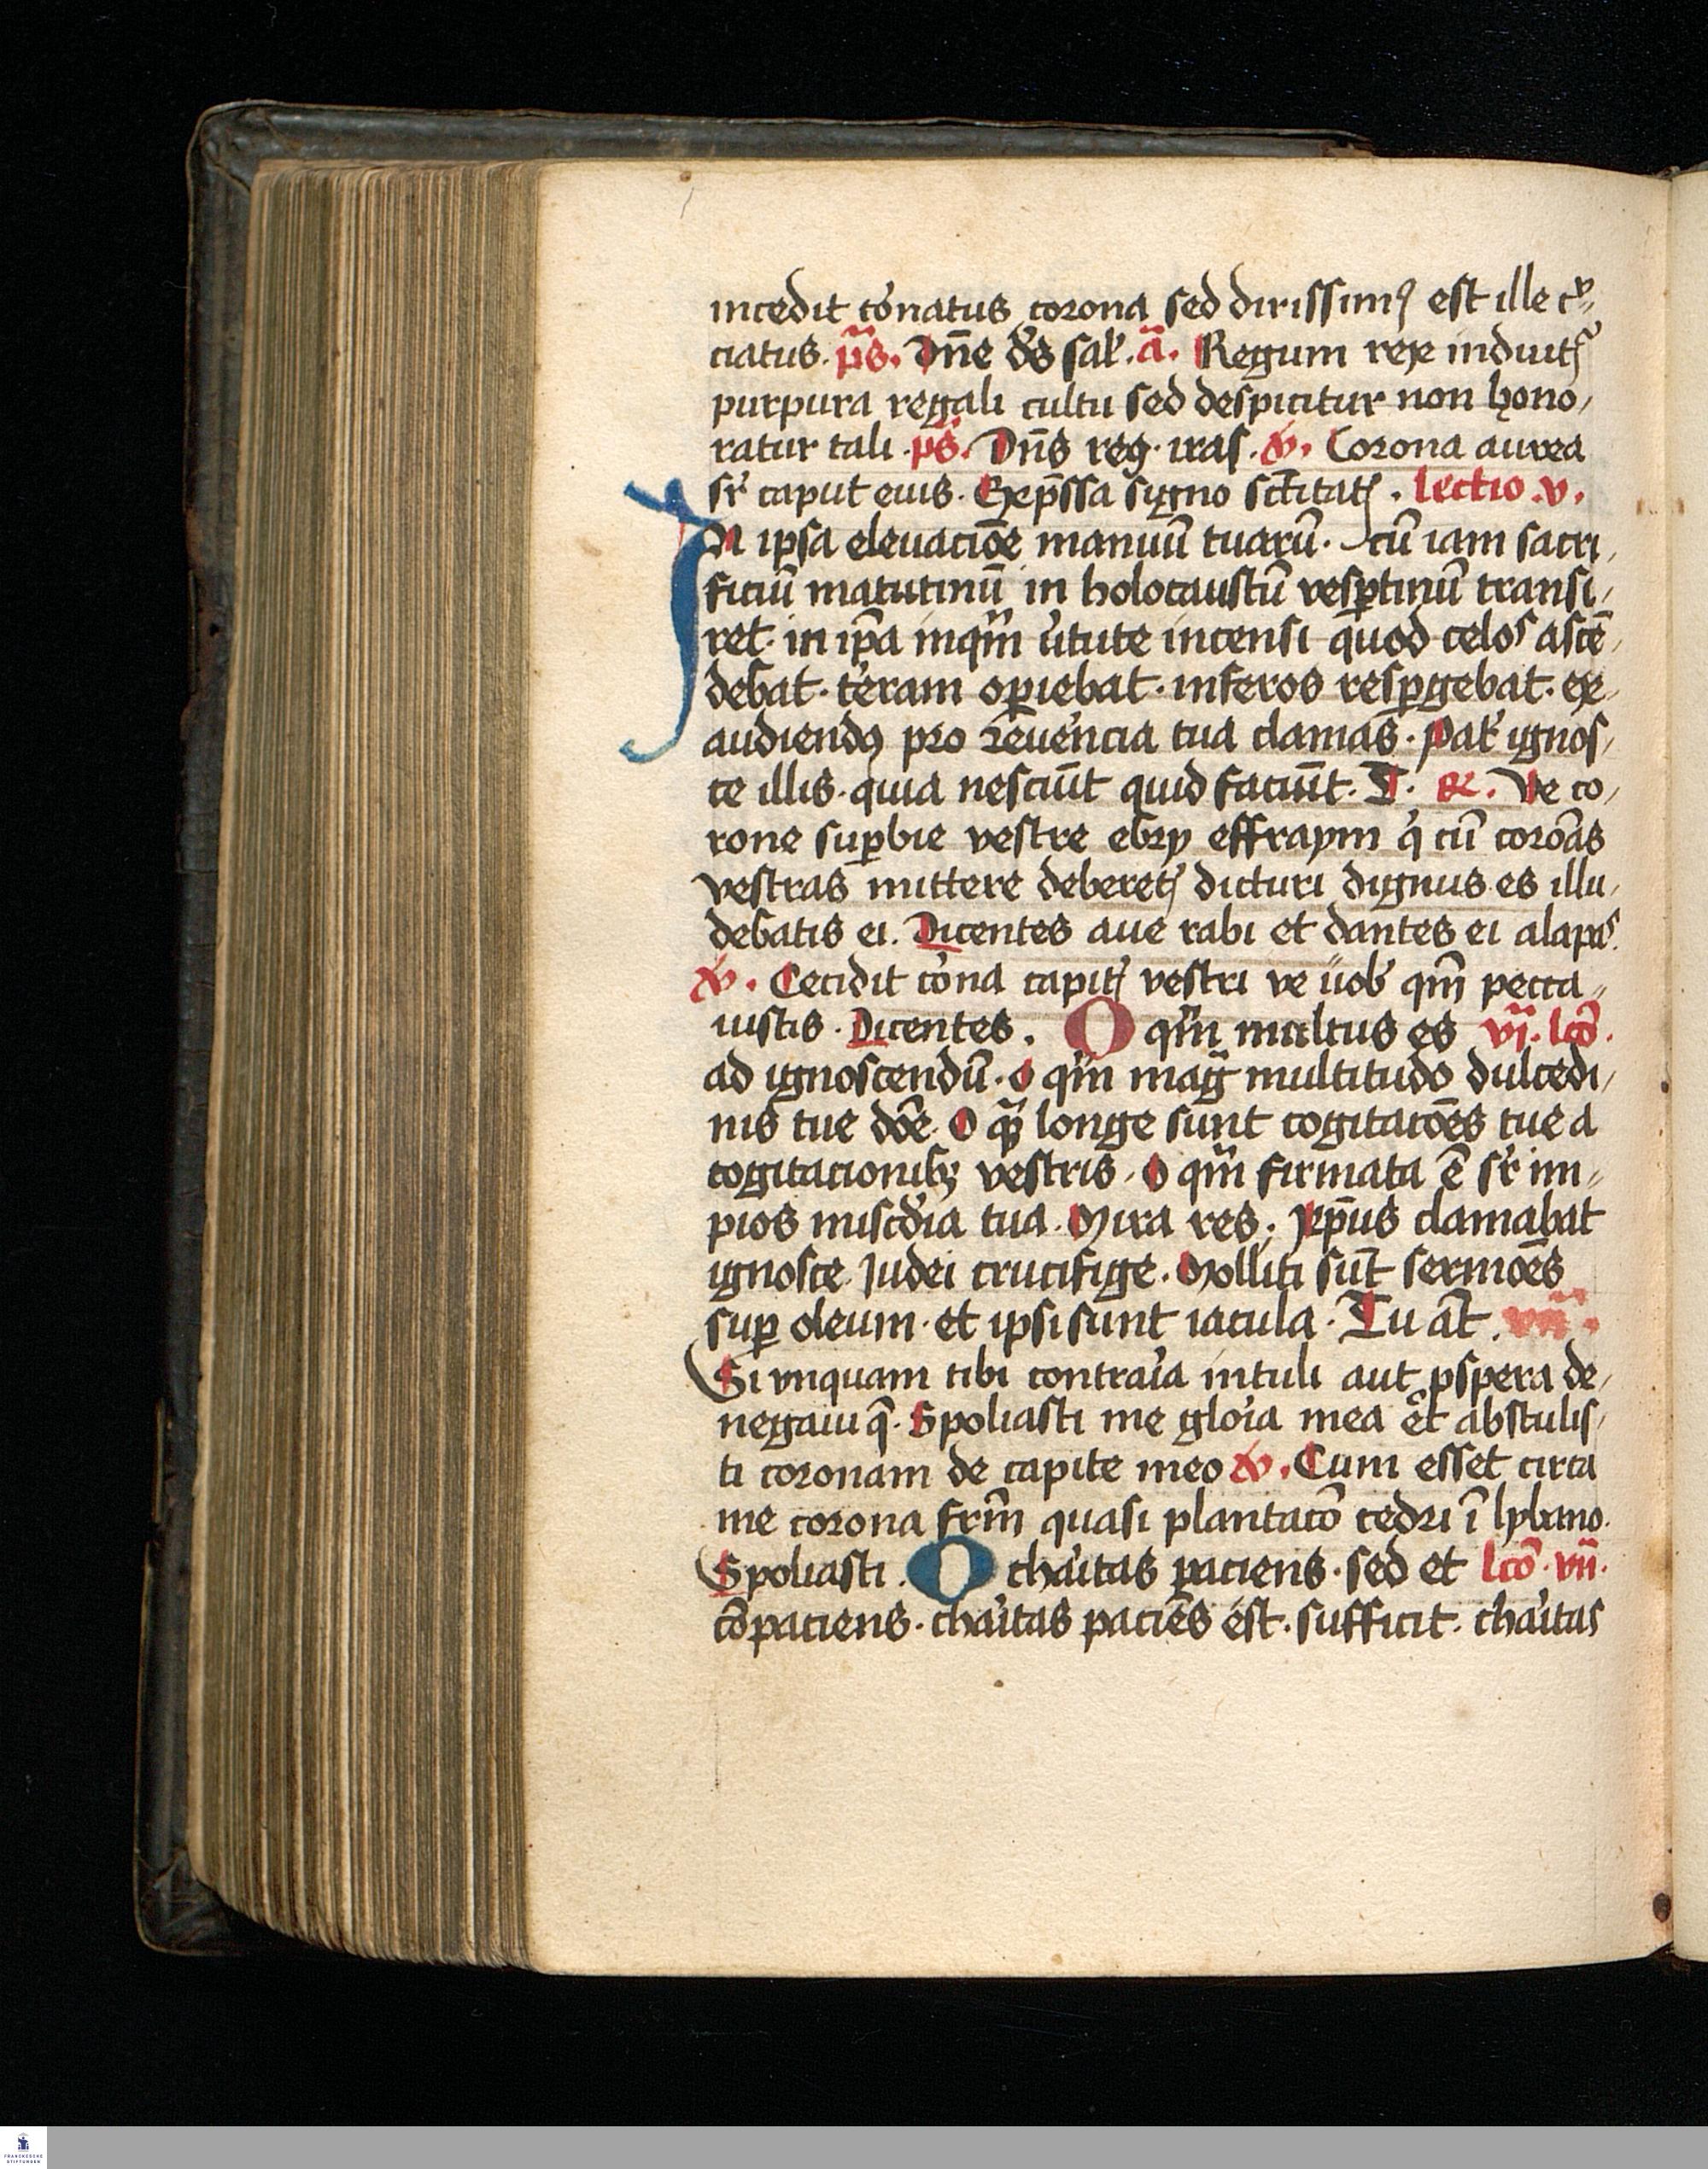 incedit co̕natus corona sed dirissimꝰ est ille cͮ„
ciatus. p̄s. Dn̄e d̕s sal̕. aᷓ. Regum rex induitᷓ
purpura regali cultu sed despicitur non hono,
ratur tali. p̄s. Dn̄s reg. iras. ꝟ. Corona aurea
sr̕ caput eius. Exp̄ssa signo sc̄titatꝭ. lectio .v.
In ipsa eleuacio̅e manuū tuarū. cū iam sacri,
ficiū matutinū in holocaustū vesꝑtinū transi,
ret. in ip̄a inqm̄ v̕tute incensi quod celos ascē,
debat. te̕ram oꝑiebat. inferos resꝑgebat. ex,
audiendꝰ pro reue̕ncia tua clamas. Pat̕ ignos,
ce illis. quia nesciūt quid faciūt. T. ℟. Ve co,
rone suꝑbie vestre ebrij effraym q̕ cū coro̅as
vestras mittere deberetꝭ dicturi dignus es illu,
debatis ei. Dicentes aue rabi et dantes ei alapas.
ꝟ. Cecidit co̕na capitꝭ vestri ve uob̕ qm̄ pecca„
uistis. Dicentes. O qm̄ multus es vi. lcō.
ad ignoscendū. O qm̄ mag̅ multitudo dulcedi,
nis tue do̅e. O qᷓ longe sunt cogitaco̅es tue a
cogitacionibꝫ vestris. O qm̄ firmata ē sr̕ im„
pios miscd̕ia tua. Mira res. xp̄us clamabat
ignosce. Judei crucifige. Molliti sūt sermo̅es
suꝑ oleum. et ipsi sunt iacula. Tu a̅t. vii.
Si vnquam tibi contra̕ia intuli aut ꝓspera de,
negaui q̄. Spoliasti me glo̕ia mea et abstulis,
ti coronam de capite meo ꝟ. Cum esset circa
me corona frm̄ quasi plantaco̅ cedri ī lybano.
Spoliasti. O cha̕itas paciens. sed et lcō. vii.
co̅paciens. cha̕itas paciēs est. sufficit. cha̕itas
FRANCKESCHE
STIFTUNGEN